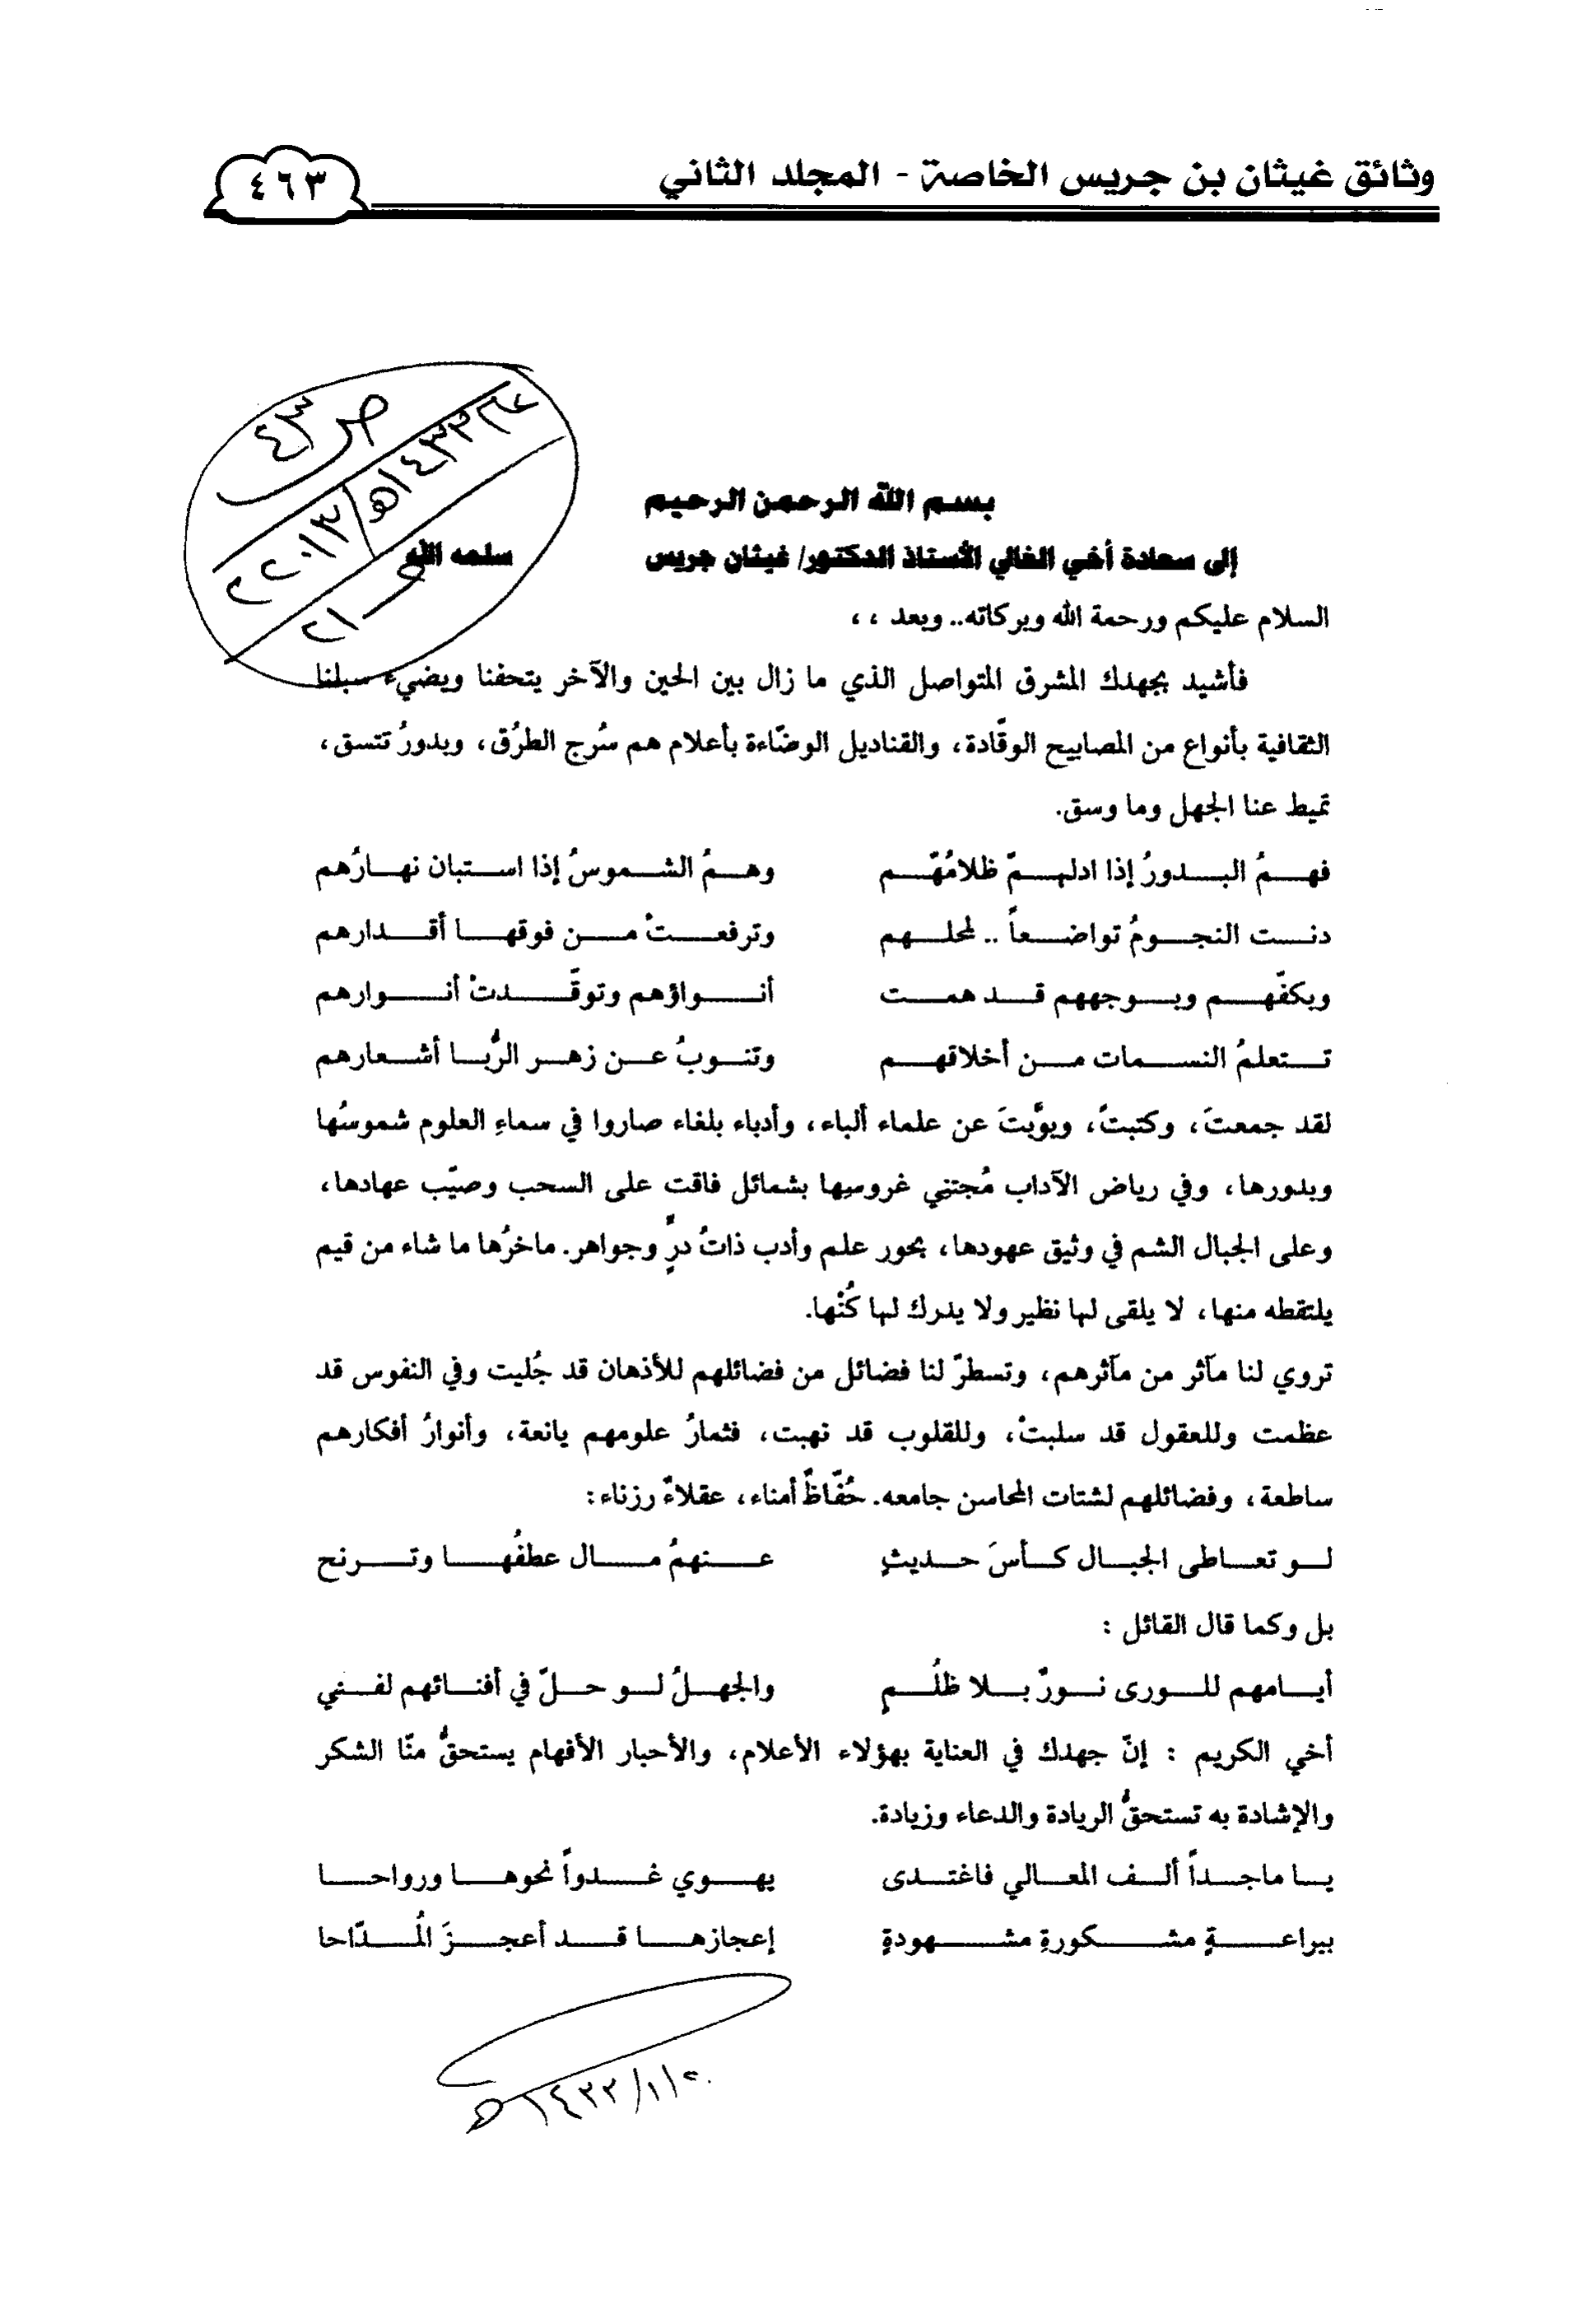 وثائق غيثان بن جريس الخاصة - المجلد الثاني
٤٦٣
ص ٤٣
بسم الله الرحمن الرحيم
إلى سعادة أخي الغالي الأستاذ الدكتور/ غيثان جريس سلمه الله
السلام عليكم ورحمة الله وبركاته.. وبعد ،،
فأشيد بجهدك المشرق المتواصل الذي ما زال بين الحين والآخر يتحفنا ويضيء سبلنا
الثقافية بأنواع من المصابيح الوقّادة، والقناديل الوضّاءة بأعلام هم سُرج الطرُق، وبدورُ تتسق،
تميط عنا الجهل وما وسق.
فهمُ البدورُ إذا ادلهمّ ظلامُهّم وهمُ الشموسُ إذا استبان نهارُهم
دنت النجومُ تواضعاً .. لمحلهم وترفعتْ من فوقها أقدارهم
وبكفّهم وبوجههم قد همت أنواؤهم وتوقّدتْ أنوارهم
تتعلمُ النسمات من أخلاقهم وتنوبُ عن زهر الرُّبا أشعارهم
لقد جمعتَ، وكتبتً، وبوَّبتَ عن علماء ألباء، وأدباء بلغاء صاروا في سماءِ العلوم شموسُها
وبدورها، وفي رياض الآداب مُجتني غروسِها بشمائل فاقت على السحب وصيّب عهادها،
وعلى الجبال الشم في وثيق عهودها، بحور علم وأدب ذاتُ درٍّ وجواهر. ماخرُها ما شاء من قيم
يلتقطه منها، لا يلقى لها نظير ولا يدرك لها كُنْها.
تروي لنا مآثر من مآثرهم، وتسطرّ لنا فضائل من فضائلهم للأذهان قد جُليت وفي النفوس قد
عظمت وللعقول قد سلبتْ، وللقلوب قد نهبت، فثمارُ علومهم يانعة، وأنوارُ أفكارهم
ساطعة، وفضائلهم لشتات المحاسن جامعه. حُفّاظٌ أمناء، عقلاءٌ رزناء:
لو تعاطى الجبال كأسَ حديثٍ عنهمُ مال عطفُها وترنح
بل وكما قال القائل :
أيامهم للورى نورٌ بلا ظلُمٍ والجهلُ لو حلّ في أفنائهم لفني
أخي الكريم : إنّ جهدك في العناية بهؤلاء الأعلام، والأحبار الأفهام يستحقُّ منّا الشكر
والإشادة به تستحقُّ الريادة والدعاء وزيادة.
يا ماجداً ألف المعالي فاغتدى يهوي غدواً نحوها ورواحا
ببراعةٍ مشكورةِ مشهودةٍ إعجازها قد أعجزَ المُدّاحا